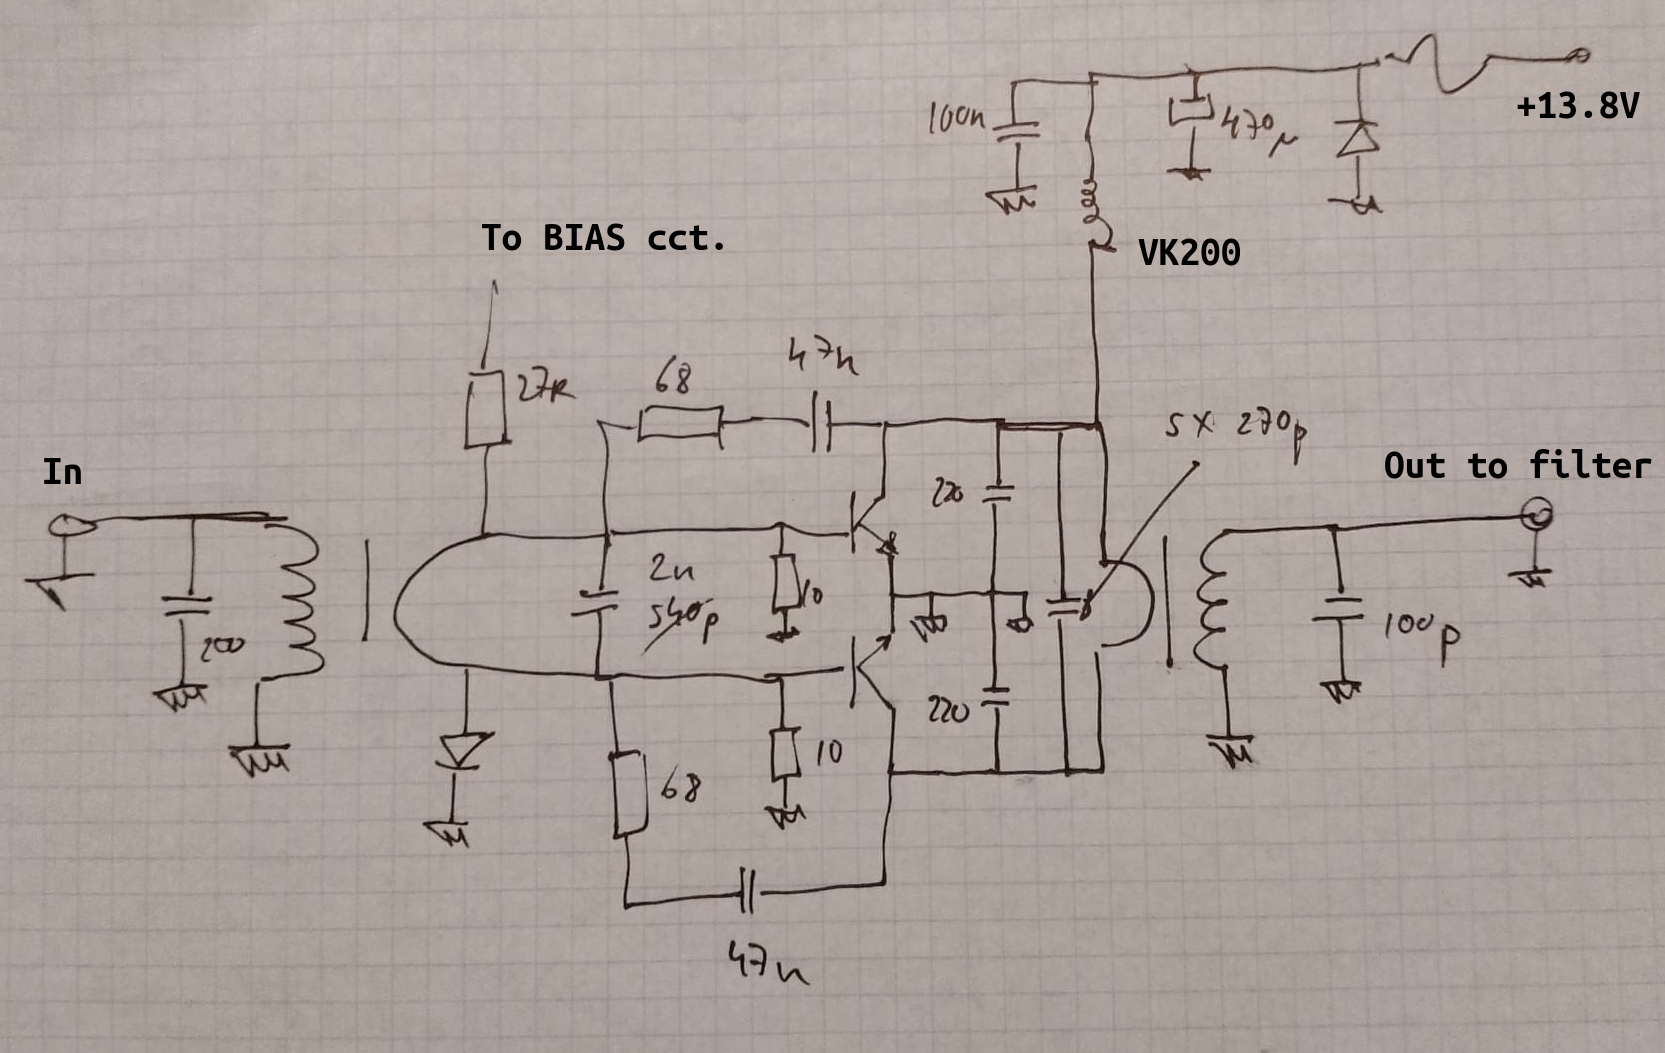 +13.8V
100n
470µ
To BIAS cct.
VK200
47n
68
27R
5 X 270p
In
Out to filter
220
2n
540p
10
200
100p
220
10
68
47n